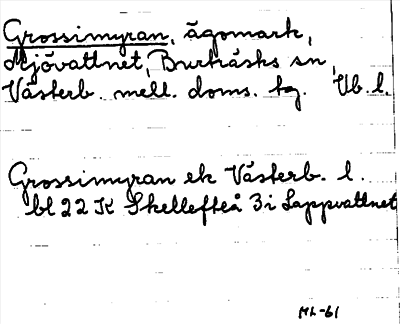 Grossimyran, ägomark,
Mjövattnet, Burträsks sn,
Västerb. mell. doms. tg. Vb. l.
Grossimyran ek Västerb. l.
bl 22 K Skellefteå 3i Lappvattnet
ML-61